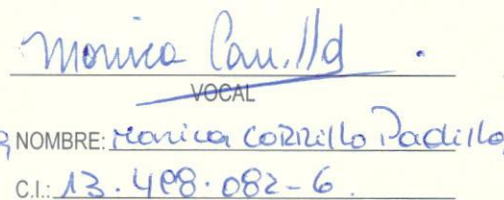 Monica Carrillo
VOCAL
NOMBRE: Monica CORRillo Padilla
C.I.: 13.498.082-6.